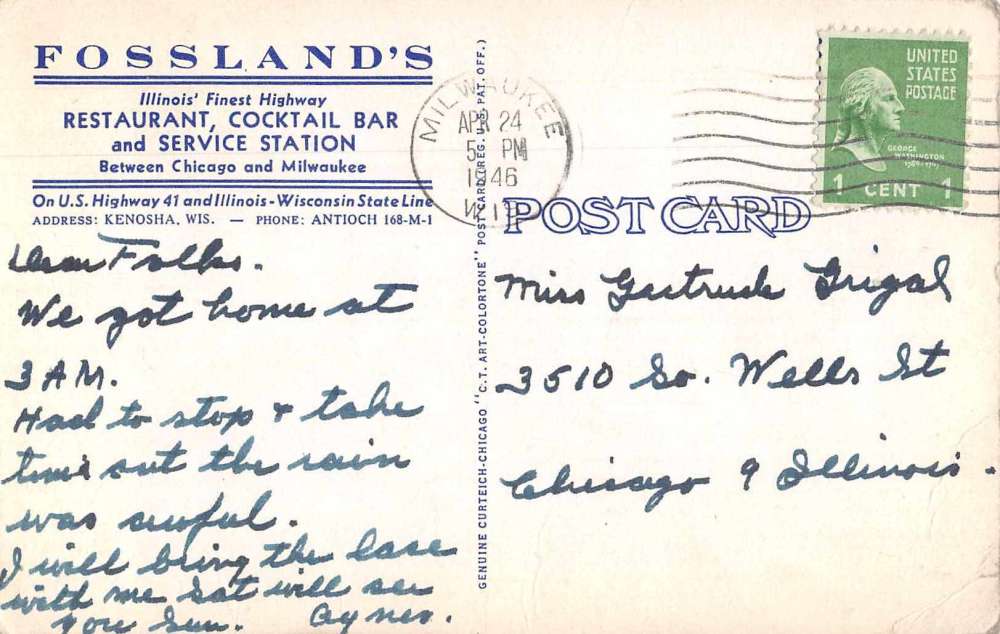 FOSSLAND'S
Illinois' Finest Highway
RESTAURANT, COCKTAIL BAR
and SERVICE STATION
Between Chicago and Milwaukee
On U.S. Highway 41 and Illinois-Wisconsin State Line
ADDRESS: KENOSHA, WIS. — PHONE: ANTIOCH 168-M-1
Dear Folks.
We got home at
3 AM.
Had to stop & take
time out the rain
was awful.
I will bring the lace
with me Sat will see
you Sun. Agnes.
GENUINE CURTEICH-CHICAGO "C.T. ART-COLORTONE" POST CARD (REG. U.S. PAT. OFF.)
MILWAUKEE
APR 24
5 PM
1946
WIS
UNITED
STATES
POSTAGE
GEORGE
WASHINGTON
1789-1797
1 CENT 1
POST CARD
Miss Gertrude Grigal
3510 So. Wells St
Chicago 9 Illinois.